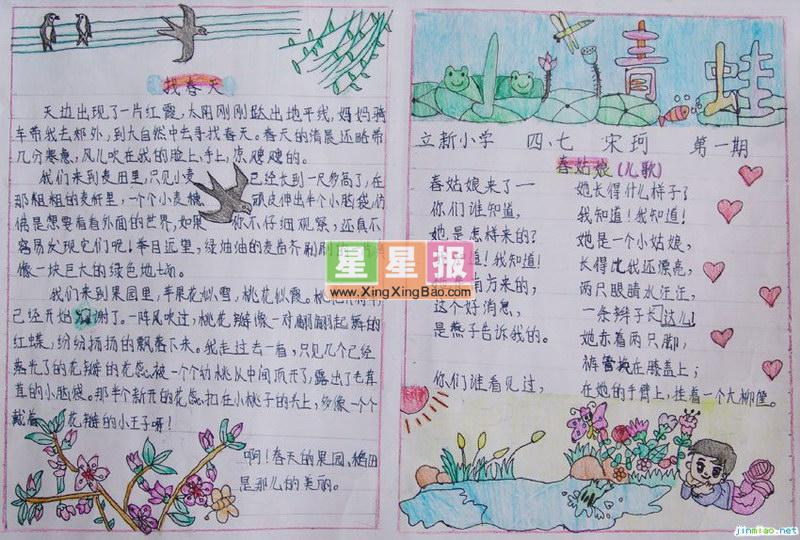 找春天
天边出现了一片红霞,太阳刚刚跃出地平线,妈妈骑
车带我去郊外,到大自然中去寻找春天。春天的清晨还略带
几分寒意,风儿吹在我的脸上、手上,凉飕飕的。
我们来到麦田里,只见小麦已经长到一尺多高了,在
那粗粗的麦秆里,一个个小麦穗顽皮伸出半个小脑袋,仿
佛是想要看看外面的世界,如果你不仔细观察,还真不
容易发现它们呢!举目近里,绿油油的麦苗齐刷刷
像一块巨大的绿色地土。
我们来到果园里,苹果花似雪,桃花似霞。
已经开始谢了。一阵风吹过,桃花瓣像一对翩翩起舞的
红蝶,纷纷扬扬的飘落下来。我走过去一看,只见几个已经
落光了的花瓣的花蕊,被一个个幼桃从中间顶开了,露出了毛茸
茸的小脑袋。那半个新开的花蕊扣在小桃子的头上,多像一个个
戴着花瓣的小王子呀!
啊!春天的果园、稻田
是那儿的美丽。
青蛙
立新小学 四、七 宋珂 第一期
春姑娘(儿歌)
春姑娘来了一
你们谁知道,
她是怎样来的?
道!我知道!
南方来的,
这个好消息,
是燕子告诉我的。
你们谁看见过,
她长得什么样子?
我知道!我知道!
她是一个小姑娘,
长得比我还漂亮,
两只眼睛水汪汪,
一条辫子长这儿!
她赤着两只脚,
裤管挽在膝盖上;
在她的手臂上,挂着一个大柳筐。
星星报
www.XingXingBao.com
jinmiao.net